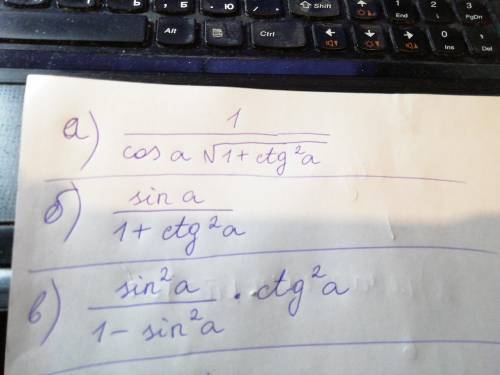 Б . Ю / . ⇧ Shift 1 End 2 3 PgDn
Alt Ctrl ← ↓ → 0 Ins . Del
а) 1 / (cos a √(1 + ctg²a))
б) sin a / (1 + ctg²a)
в) sin²a / (1 - sin²a) · ctg²a